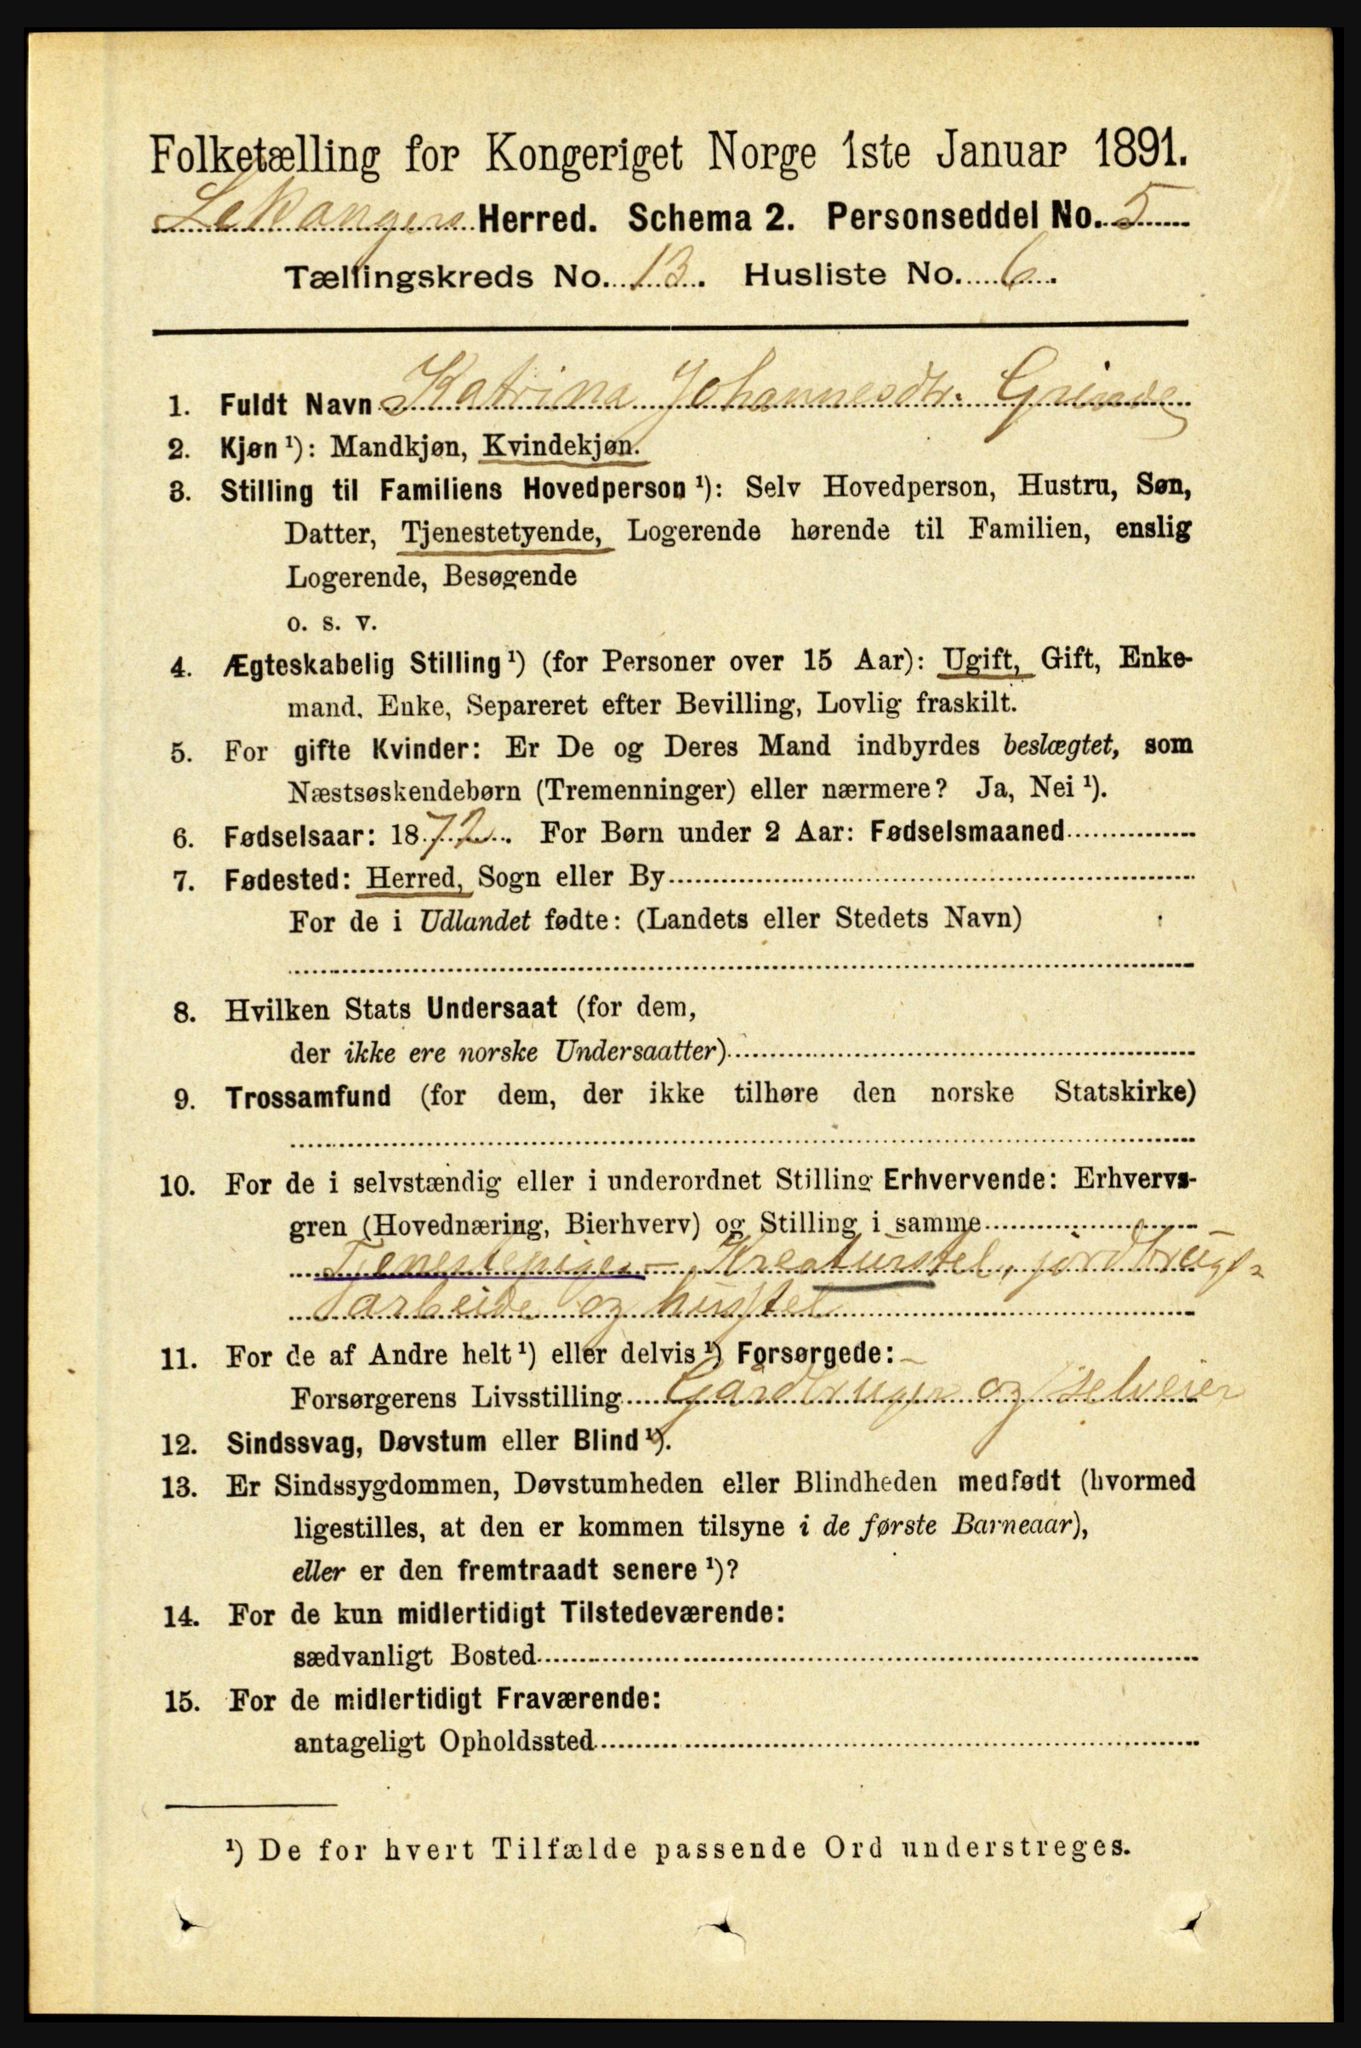 Folketælling for Kongeriget Norge 1ste Januar 1891.
Lekangers Herred. Schema 2. Personseddel No. 5
Tællingskreds No. 13. Husliste No. 6.
1. Fuldt Navn Katrina Johannesdtr. Grinde
2. Kjøn ¹): Mandkjøn, Kvindekjøn.
3. Stilling til Familiens Hovedperson ¹): Selv Hovedperson, Hustru, Søn,
Datter, Tjenestetyende, Logerende hørende til Familien, enslig
Logerende, Besøgende
o. s. v.
4. Ægteskabelig Stilling ¹) (for Personer over 15 Aar): Ugift, Gift, Enke-
mand, Enke, Separeret efter Bevilling, Lovlig fraskilt.
5. For gifte Kvinder: Er De og Deres Mand indbyrdes beslægtet, som
Næstsøskendebørn (Tremenninger) eller nærmere? Ja, Nei ¹).
6. Fødselsaar: 1872. For Børn under 2 Aar: Fødselsmaaned
7. Fødested: Herred, Sogn eller By
For de i Udlandet fødte: (Landets eller Stedets Navn)
8. Hvilken Stats Undersaat (for dem,
der ikke ere norske Undersaatter)
9. Trossamfund (for dem, der ikke tilhøre den norske Statskirke)
10. For de i selvstændig eller i underordnet Stilling Erhvervende: Erhvervs-
gren (Hovednæring, Bierhverv) og Stilling i samme
Tjenestepige - Kreaturstel, jordbrugs-
arbeide og husstel
11. For de af Andre helt ¹) eller delvis ¹) Forsørgede: -
Forsørgerens Livsstilling Gårdbruger og selveier
12. Sindssvag, Døvstum eller Blind ¹).
13. Er Sindssygdommen, Døvstumheden eller Blindheden medfødt (hvormed
ligestilles, at den er kommen tilsyne i de første Barneaar),
eller er den fremtraadt senere ¹)?
14. For de kun midlertidigt Tilstedeværende:
sædvanligt Bosted
15. For de midlertidigt Fraværende:
antageligt Opholdssted
¹) De for hvert Tilfælde passende Ord understreges.